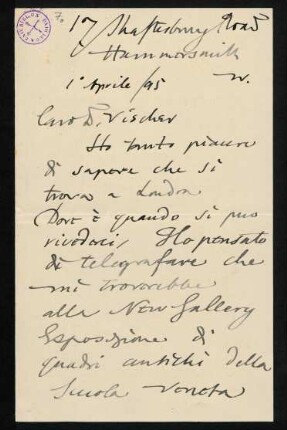 17 Shaftesbury Road
Hammersmith
W.
1° Aprile /95
Caro D. Vischer
Ho tanto piacere
di sapere che si
trova a Londra
Dove è quando si può
rivederci, Ho pensato
di telegrafare che
mi troverebbe
alla New Gallery
Esposizione di
quadri antichi della
Scuola Veneta